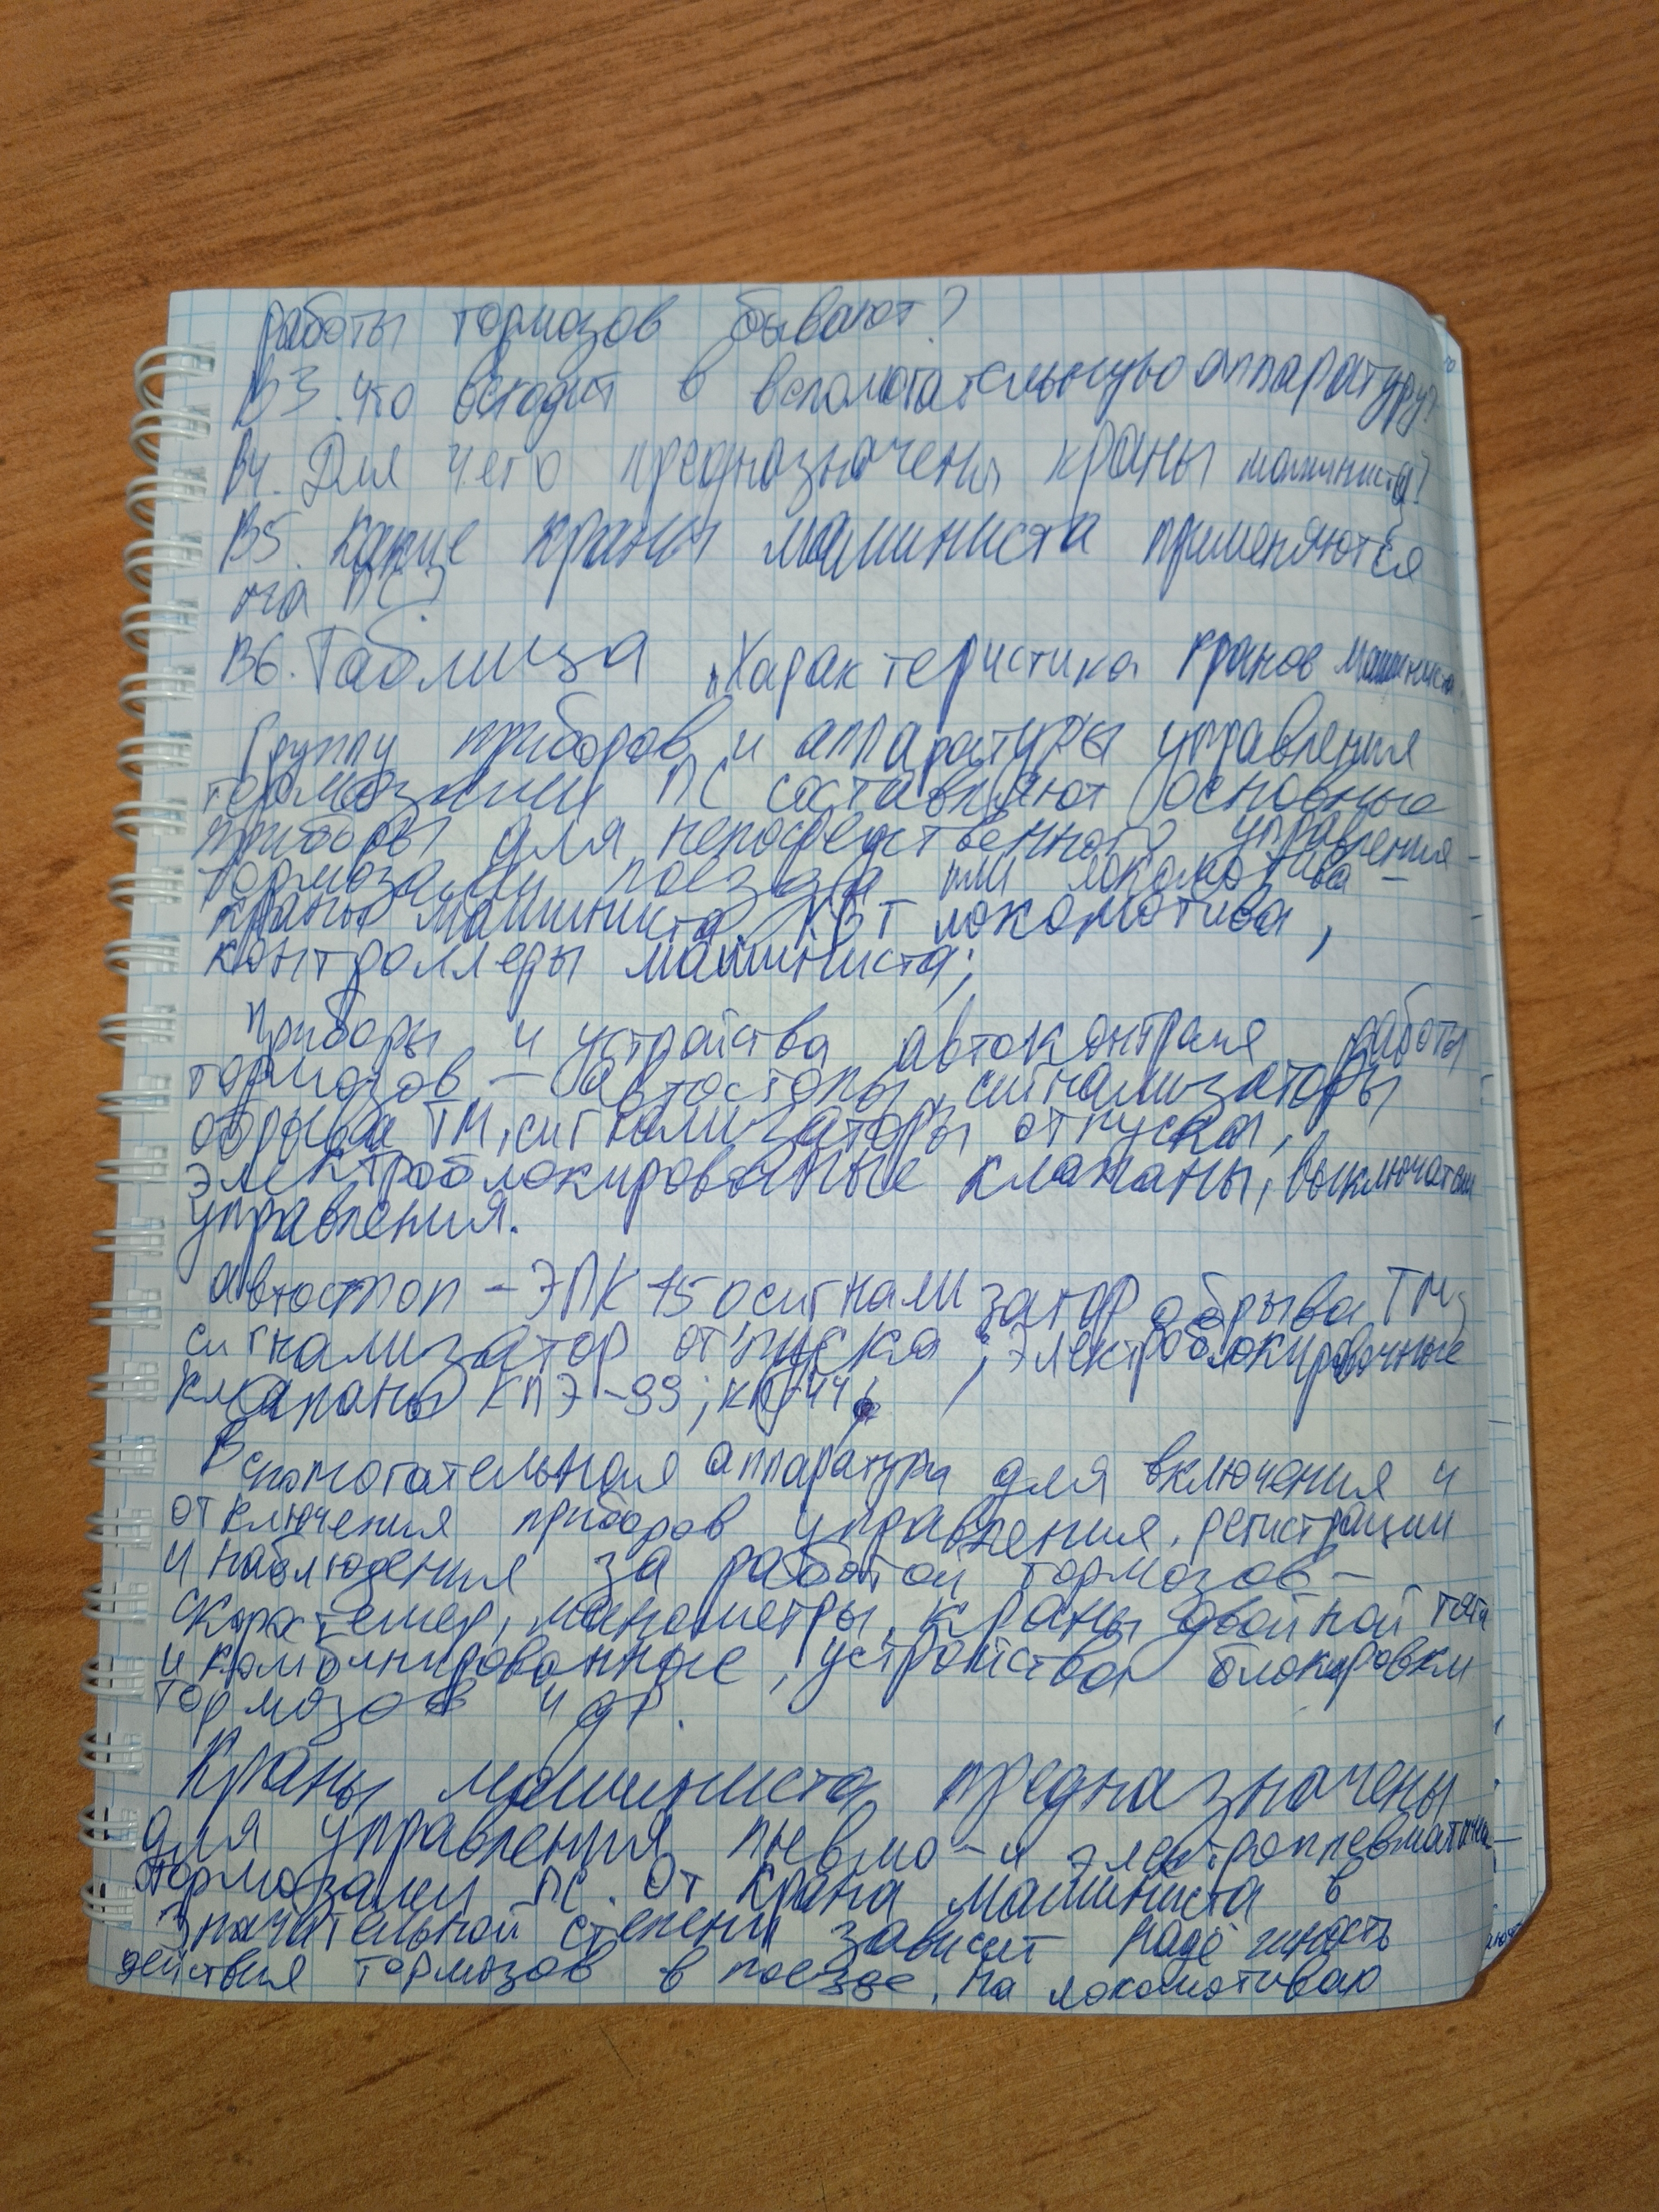 работы тормозов бывают?
В3. Что входит в вспомогательную аппаратуру?
В4. Для чего предназначены краны машиниста?
В5. Какие краны машиниста применяются
на ПС?
В6. Таблица „Характеристика кранов машиниста
Группу приборов и аппаратуры управления
тормозами ПС составляют основные
приборы для непосредственного управления
тормозами поезда или локомотива –
краны машиниста, КВТ локомотива,
контроллеры машиниста;
Приборы и устройства автоконтроля работы
тормозов – автостопы, сигнализаторы
обрыва ТМ, сигнализаторы отпуска,
электроблокированые клапаны, выключатели
управления.
автостоп – ЭПК 150 сигнализатор обрыва ТМ;
сигнализатор отпуска; электроблокировочные
клапаны КПЭ-99;
Вспомогательная аппаратура для включения и
отключения приборов управления, регистрации
и наблюдения за работой тормозов –
манометры, краны двойной тяги
и комбинированные, устройства блокировки
тормозов и др.
Краны машиниста предназначены
для управления пневмо-и
тормозами ПС. От крана машиниста в
значительной степени зависит надёжность
действия тормозов в поезде. На локомотивах